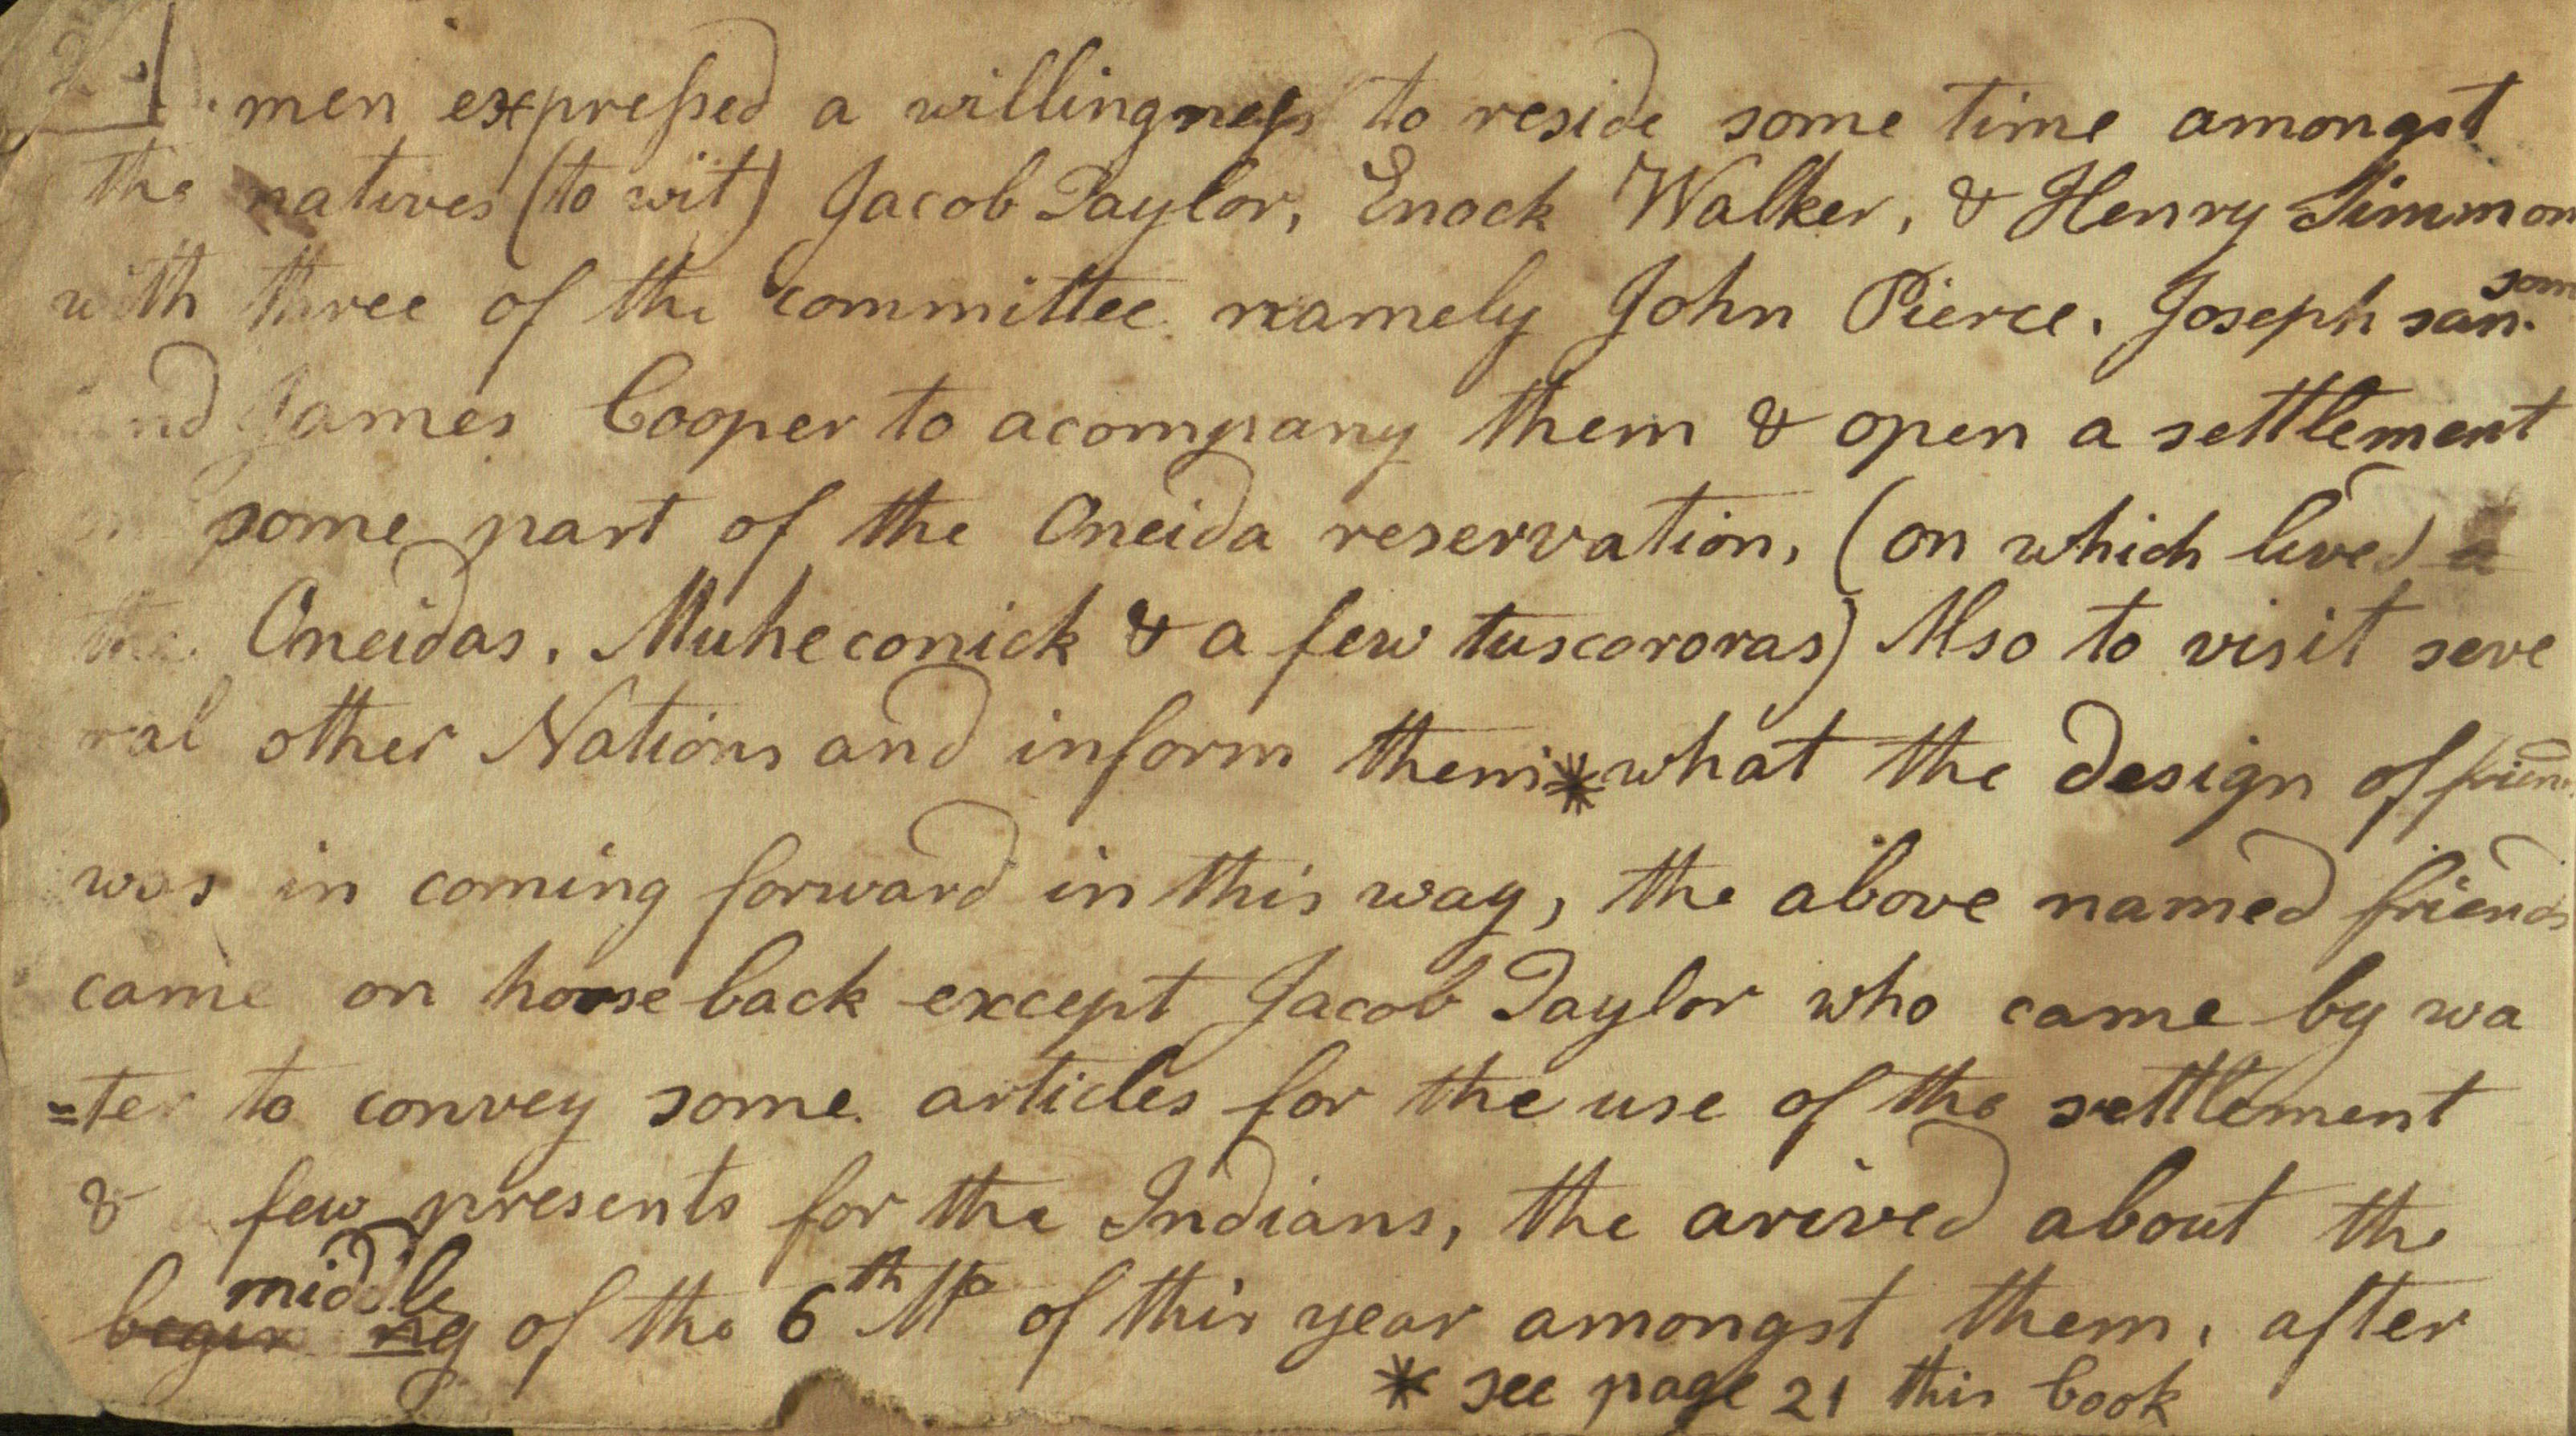 2
men expressed a willingness to reside some time amongst
the natives (to wit) Jacob Taylor, Enock Walker, & Henry Simmon
with three of the committee namely John Pierce. Joseph san som
and James Cooper to acompany them & open a settlement
some part of the Oneida reservation, (on which lived a
the Oneidas, Muheconick & a few tuscororas) Also to visit seve
ral other Nations and inform them * what the design of frien
was in coming forward in this way, the above named friends
came on horse back except Jacob Taylor who came by wa
=ter to convey some articles for the use of the settlement
& a few presents for the Indians, the arived about the
middle
begin ng of the 6th Mo of this year amongst them, after
* see page 21 this book